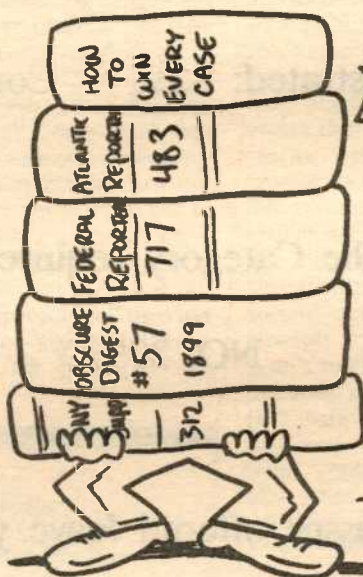 HOW
TO
WIN
EVERY
CASE
ATLANTIC
REPORTER
483
FEDERAL
REPORTER
717
OBSCURE
DIGEST
#57
1899
NY
312